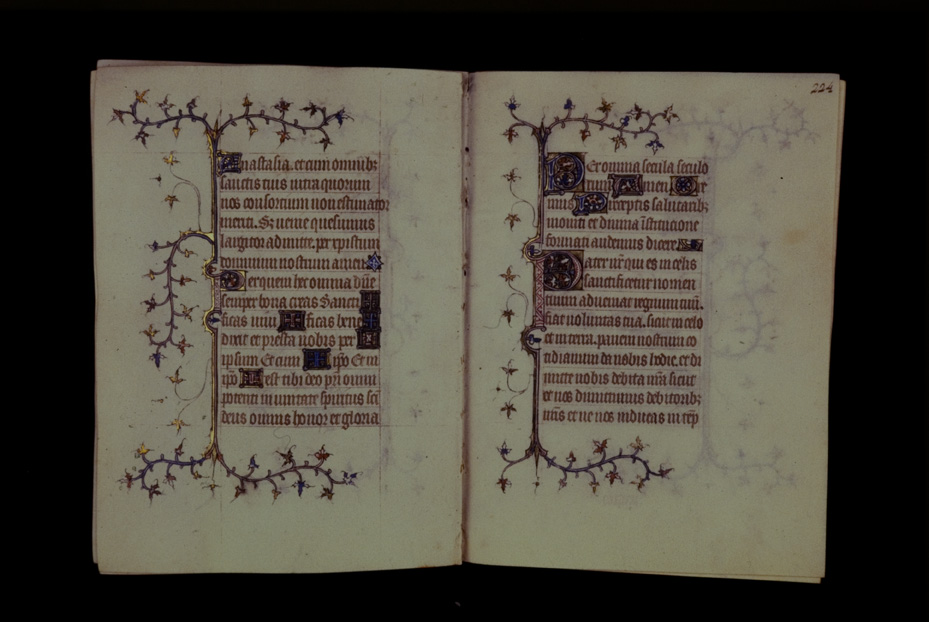 nastasia. et cum omnibꝫ
sanctis tuis intra quorum
nos consortium non estimator
meriti. Sꝫ uenie quesumus
largitor admitte. per xpistum
dominum nostrum amen
Per quem hec omnia dn̄e
semper bona creas Sancti
ficas uiui ficas bene
dicis et prestas nobis per
ipsum Et cum ipo Et in
ipo est tibi deo pr̄i omni
potenti in unitate spiritus sc̄i
deus omnis honor et gloria
224
Per omnia secula seculo
rum Amen Ore
mus Preceptis salutaribꝫ
moniti et diuina īstitucione
formati audemus dicere
Pater nr̄ qui es in celis
sanctificetur nomen
tuum adueniat regnum tuū.
fiat uoluntas tua. sicut in celo
et in terra. panem nostrum co
tidianum da nobis hodie. et di
mitte nobis debita nrā sicut
et nos dimittimus debitoribꝫ
nr̄is et ne nos inducas in tēp